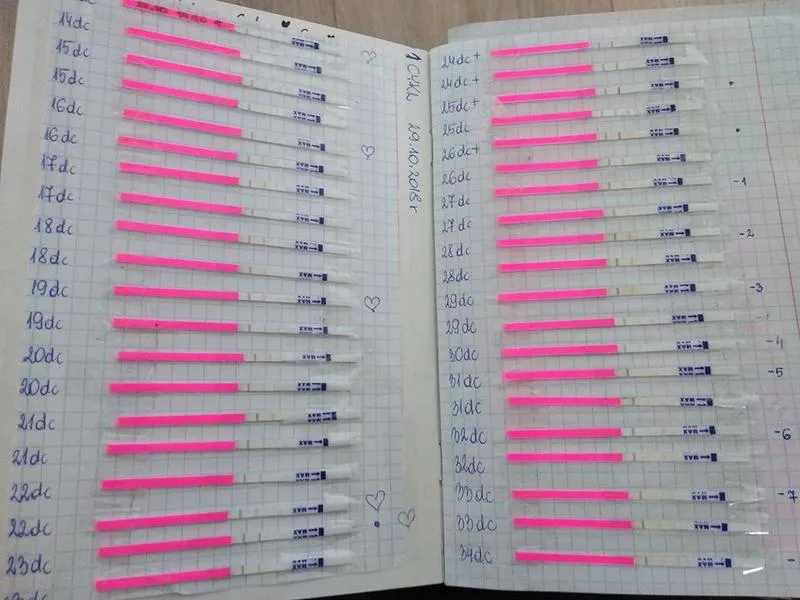 14dc
15dc
15dc
16dc
16dc
17dc
17dc
18dc
18dc
19dc
19dc
20dc
20dc
21dc
21dc
22dc
22dc
23dc
1 CYKL 29.10.2018 r
24dc+
24dc+
25dc+
25dc
26dc+
26dc
-1
27dc
27dc
-2
28dc
28dc
-3
29dc
29dc
-4
30dc
-5
31dc
31dc
-6
32dc
32dc
-7
33dc
33dc
34dc
MAX